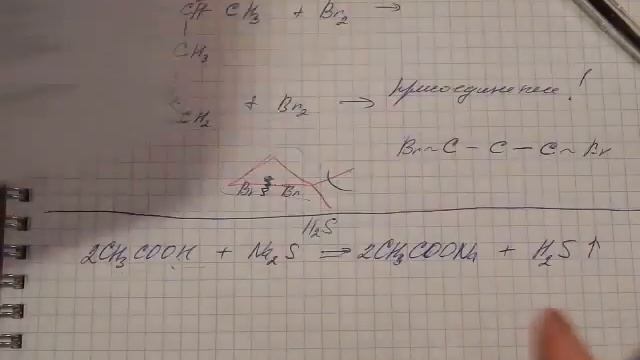 CH CH₃ + Br₂ →
CH₃
CH₂ + Br₂ → присоединение!
Br – C – C – C – Br
Br Br
H₂S
2CH₃COOH + Na₂S ⇒ 2CH₃COONa + H₂S ↑